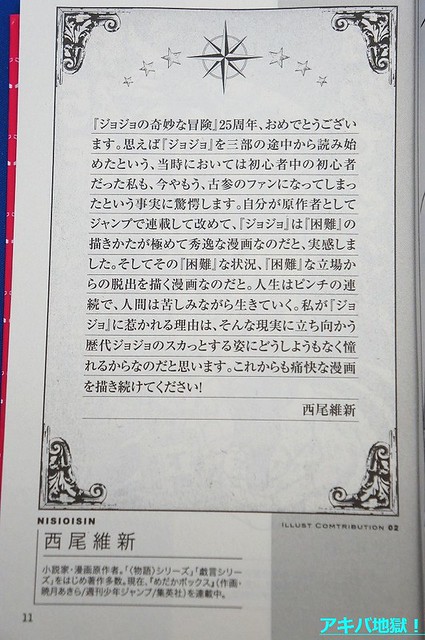 『ジョジョの奇妙な冒険』25周年、おめでとうござい
ます。思えば『ジョジョ』を三部の途中から読み始
めたという、当時においては初心者中の初心者
だった私も、今やもう、古参のファンになってしまっ
たという事実に驚愕します。自分が原作者として
ジャンプで連載して改めて、『ジョジョ』は『困難』の
描きかたが極めて秀逸な漫画なのだと、実感しま
した。そしてその『困難』な状況、『困難』な立場か
らの脱出を描く漫画なのだと。人生はピンチの連
続で、人間は苦しみながら生きていく。私が『ジョ
ジョ』に惹かれる理由は、そんな現実に立ち向かう
歴代ジョジョのスカっとする姿にどうしようもなく憧
れるからなのだと思います。これからも痛快な漫画
を描き続けてください!
西尾維新
ILLUST COMTRIBUTION 02
NISIOISIN
西尾維新
小説家・漫画原作者。「〈物語〉シリーズ」「戯言シリー
ズ」をはじめ著作多数。現在、『めだかボックス』(作画・
暁月あきら/週刊少年ジャンプ/集英社)を連載中。
11
アキバ地獄!